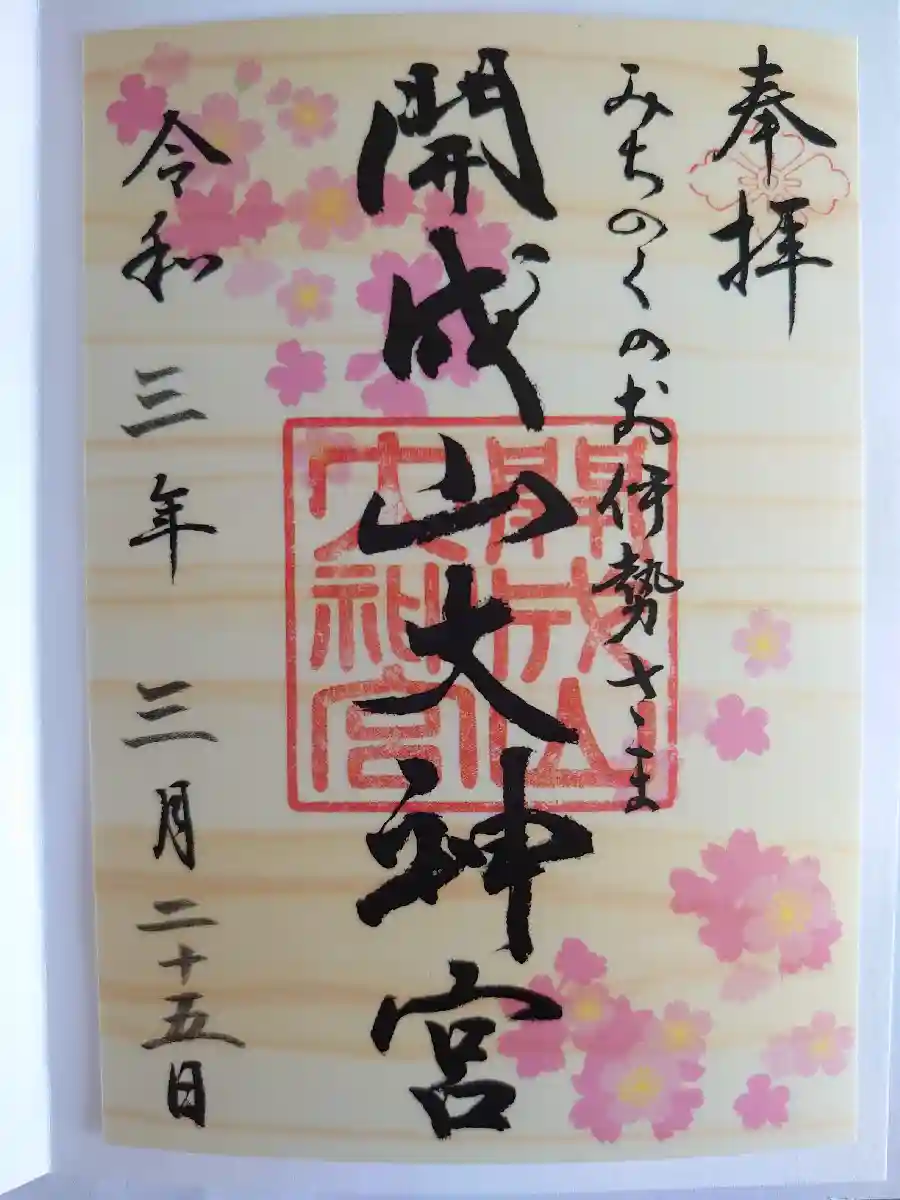 奉拝
みちのくのお伊勢さま
開成山大神宮
開成山
大神宮
令和三年三月二十五日